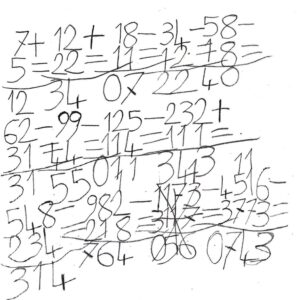 7+ 12+ 18- 34- 58-
5= 22= 11= 12= 18=
12 34 07 22 40
62- 99- 125- 232+
31= 44= 114= 111=
31 55 011 343 11
548- 982- 4516-
234= 218= 3773=
314 764 0743